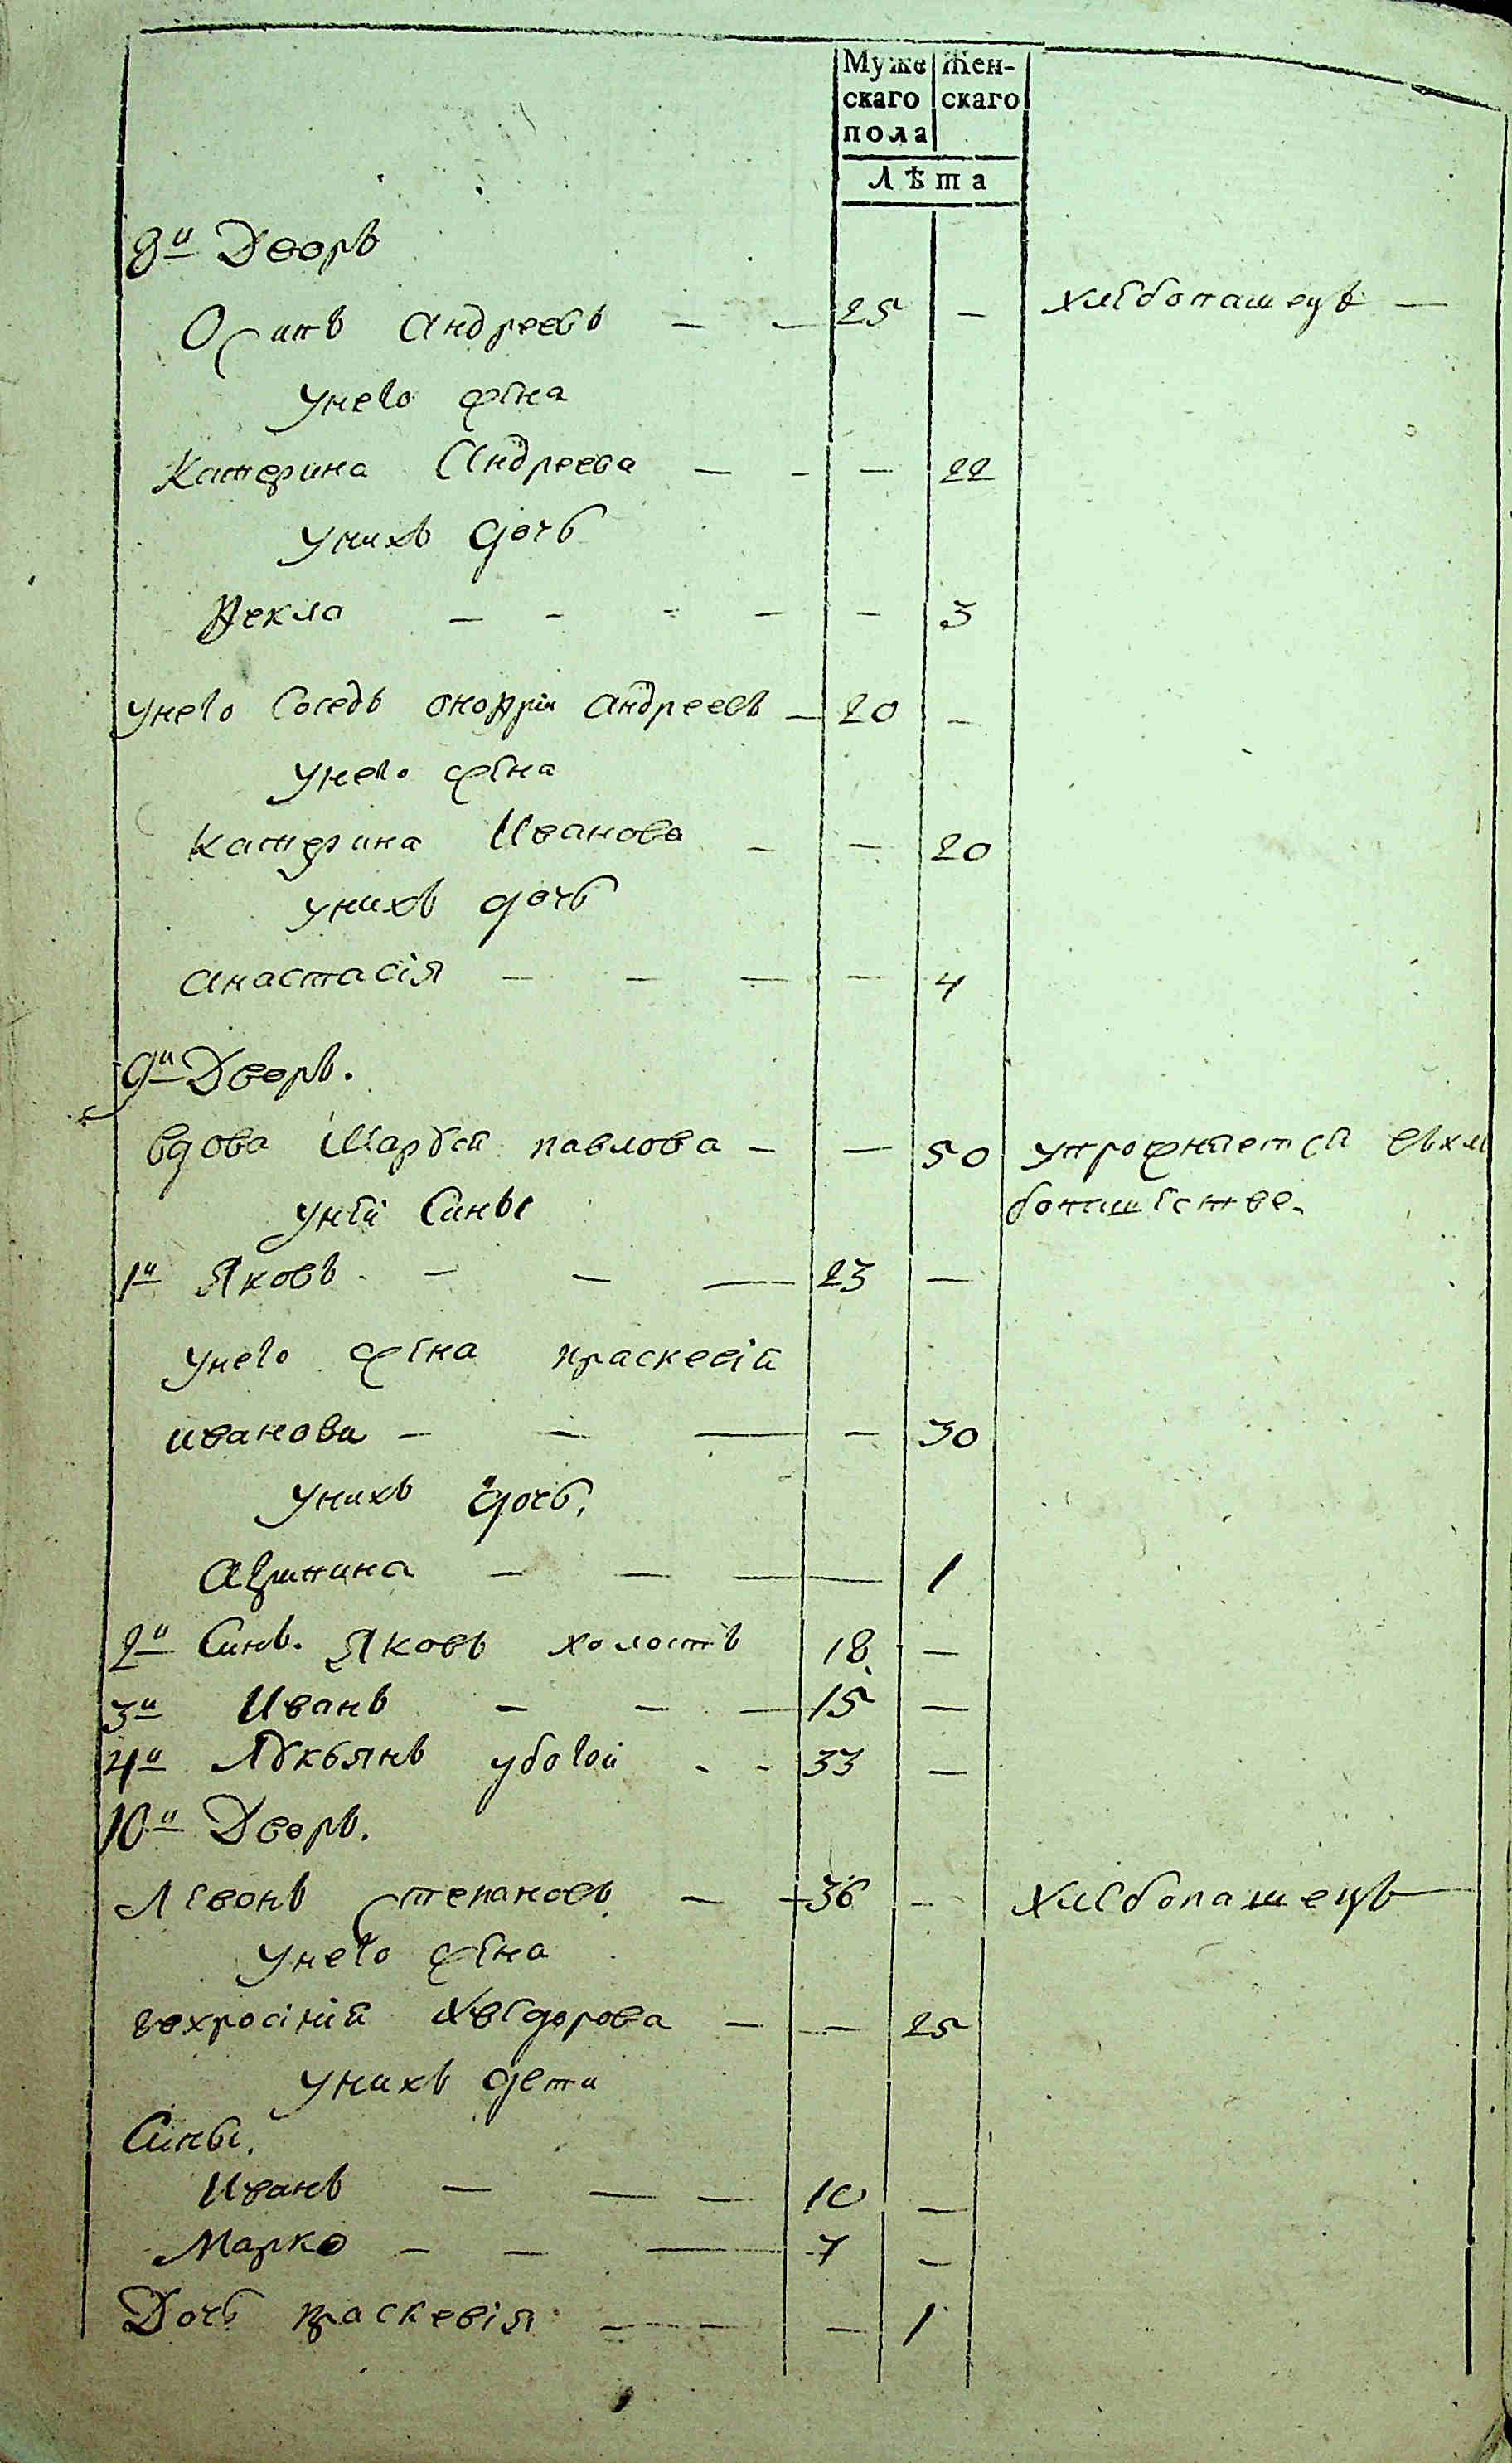 Муже Жен-
скаго скаго
пола
Лѣта
8й Дворъ
Осипъ андреевъ — — 25 — хлѣбопашецъ —
унего жена
Катерина Андреева — - — 22
унихъ дочь
Фекла — - - — — 3
унего Соседъ онофрій андреевъ — 20 —
унего жена
катерина Иванова — — 20
унихъ дочь
анастасія — — — — 4
9й Дворъ.
вдова Марѳея павлова — — 50 упрожняется въхле
боташестве.
уней Сины
1й Яковъ — — — 23 —
унего жена праскевія
иванова — — — — 30
унихъ дочь,
— — — — 1
2й Синъ. Яковъ холостъ 18 —
3й Иванъ — — — 15 —
4й Лукьянъ убогой - - 33 —
10й Дворъ.
Левонъ степановъ — — 36 — хлебопашецъ —
унего жена
евхросінія Хведорова — — 25
унихъ дети
Сины,
Иванъ — — — 10 —
Марко — — — 7 —
Дочь праскевія — — — 1